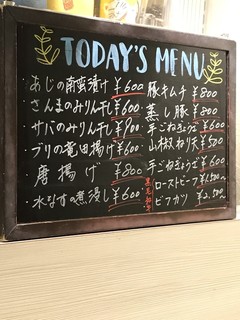 TODAY'S MENU
・あじの南蛮漬け ¥600
・さんまのみりん干し ¥600
・サバのみりん干し ¥900
・ブリの竜田揚げ ¥600
・唐揚げ ¥800
・水なすの煮浸し ¥600
・豚キムチ ¥800
・蒸し豚 ¥800
・手ごねぎょうざ ¥600
・山椒ねり天 ¥500
・手ごねぎょうざ ¥600
・ローストビーフ ¥1,500〜
・ビフカツ ¥2,500〜